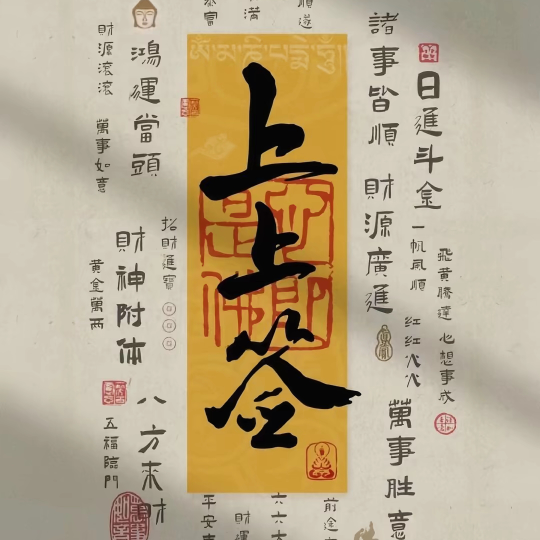 諸事皆順 財源廣進
萬事胜意
日進斗金
一帆風順
紅紅火火
飛黃騰達 心想事成
上上签
鴻運當頭
財源滾滾 萬事如意
招財進寶
財神附体
黃金萬两
八方來財
五福臨門
平安
財運
六六大
前途